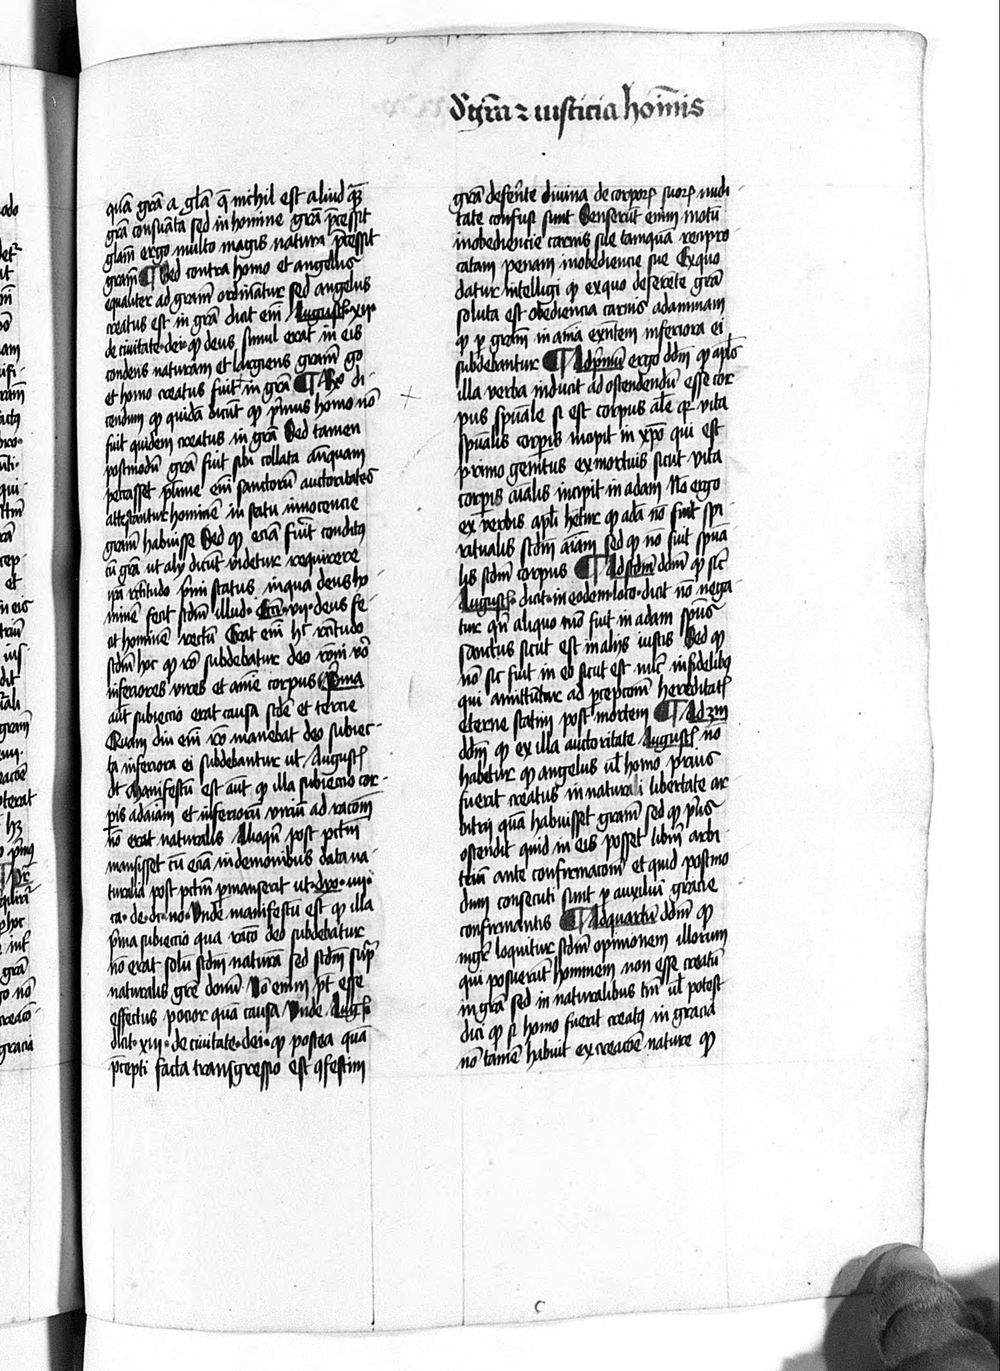 De grā ⁊ iusticia hoīnis
quā grā a glā q̄ nichil est aliud q̄ꝫ
grā consūata sed in homine grām p̄cessit
glām ergo multo magis natura p̄cessit
grām ¶ Sed contra homo et angelus
equaliter ad grām ordinātur sed angelus
creatus est in grā dicit em̄ Augustꝰ xii·
de ciuitate·dei· qꝫ deus simul erat in eis
condens naturam et largiens grām go
et homo creatus fuit in grā ¶ Rº di
cendum qꝫ quidā dicūt qꝫ p̄mus homo nō
fuit quidem creatus in grā Sed tamen
postmodū grā fuit sibi collata anꝗuam
peccasset plīme em̄ sanctorū auctoritates
attestantur hominē in statu innocencie
grām habuisse Sed qꝫ eciā fuīt conditꝰ
cū grā ut alij dicūt videtur requirere
ip̄a rctitudo p̄mi status in qua deus ho
minē fecit scdm̄ illud· Ecc̄i· vii· deus fe
cit hominē rectū Erat em̄ hͨ rctitudo
scdm̄ hoc qꝫ rō subdebatur deo rōni vº
inferiores vires et aīe corpus p̄ma
aūt subiectio erat causa scd̄e et tercie
Quam diu em̄ rō manebat deo subiec
ta inferiora ei subdebantur ut Augustꝰ
dt Manifestū est aūt qꝫ illa subiectio cor
pīs ad aīam et inferiorū viriū ad racōm
nō erat naturalis Alioqn̄ post pctm̄
mansisset cū eciā in demonibus data na
turalia post pctm̄ p̄manserīt ut·dyo·iiii·
ca·de·di·no· Vnde manifestū est qꝫ illa
p̄ma subiectio qua racō deo subdebatur
nō erat solū scdm̄ naturā sed scdm̄ sup̄
naturalis grē donū· Nō enim pt̄ esse
effectus pocior quā causa Vnde Augꝰ
dicit·xiii·de ciuitate·dei· qꝫ postea quā
p̄cepti facta transgressio est ꝯfestim
grā deserēte diuina de corporꝝ suorꝝ nudi
tate confusi sunt Senserūt enim motū
inobediencie carnis sue tamquā recipro
catam penam inobediencie sue Ex quo
datur intelligi qꝫ ex quo deserēte grā
soluta est obediencia carnis ad animam
qꝫ ꝑ grām in aīa exn̄tem inferiora ei
subdebantur ¶ Ad p̄mū ergo ddm̄ qꝫ apl̄s
illa verba inducit ad ostendendū esse cor
pus spūale si est corpus aīale qꝛ vita
spūalis corpīs incipit in xpō qui est
primo genitus ex mortuis sicut vita
corpīs aīalis incipit in adam Nō ergo
ex verbis apl̄i hētur qꝫ adā nō fuit spi
ritualis scdm̄ aīam sed qꝫ nō fuit spūa
lis scdm̄ corpus ¶ Ad scdm̄ ddm̄ qꝫ sic
Augustꝰ dicit·in eodem·loco·dicit nō nega
tur qn̄ aliquo mō fuit in adam spūs
sanctus sicut est in alijs iustis Sed qꝫ
nō sic fuit in eo sicut est nūc in fidelibꝰ
qui amittūtur ad p̄ceptcōm̄ hereditatꝭ
eterne statim post mortem ¶ Ad 3m̄
ddm̄ qꝫ ex illa auctoritate Augustꝰ nō
habetur qꝫ angelus ul̄ homo prius
fuerit creatus in naturali libertate ar
bitrij quā habuisset grām sed qꝫ p̄us
ostendit quid in eis posset libm̄ arbi
triū ante confirmacōm̄ et quid postmo
dum consecuti sunt ꝑ auxiliū gracie
confirmantis ¶ Ad quartū ddm̄ qꝫ
mgr̄ loquitur scdm̄ opinionem illorum
qui posuerūt hominem non esse creatū
in grā sed in naturalibus tm̄ ul̄ potest
dici qꝫ si homo fuerit creatꝰ in gracia
nō tamē habuit ex creacōe nature qꝫ